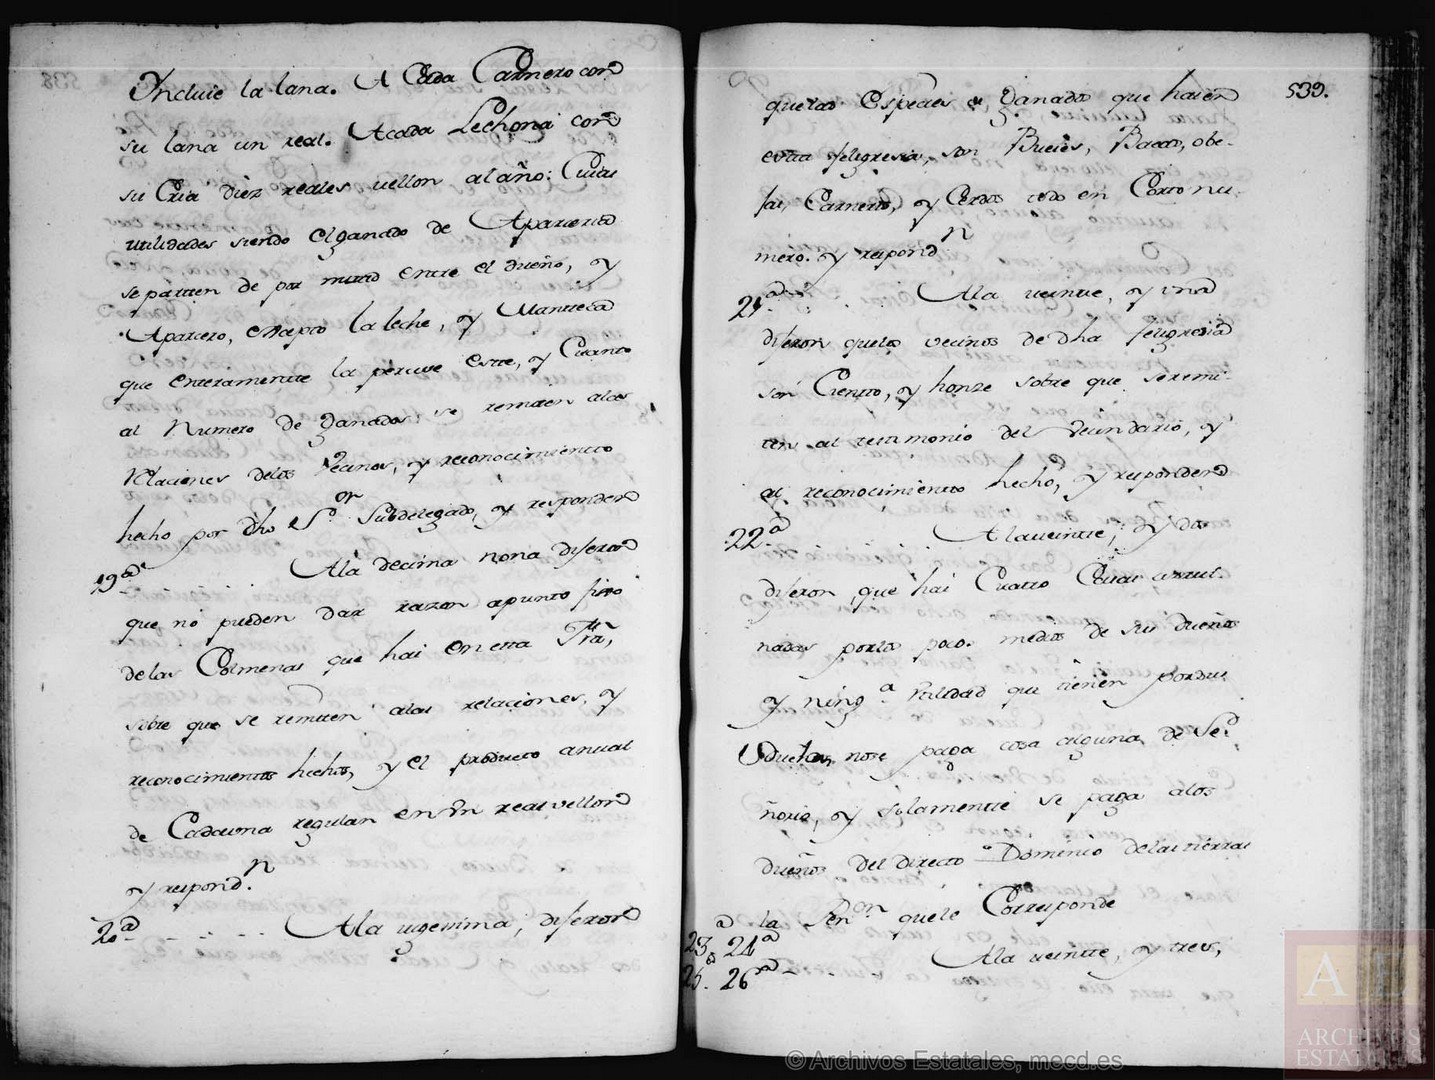 Yncluie la lana. A Cada Carnero con
su lana un real. Acada Lechona con
su Cria diez reales vellon al año: Cuias
utilidades siendo el ganado de Aparceria
se parten de por mitad entre el dueño, y
Aparcero, excepto la leche, y Manteca
que enteramente la percive este, y Cuanto
al Numero de Ganados se remiten alas
Relaciones delos Vecinos, y reconocimiento
hecho por dho Sor. Subdelegado, y responden
19ª Ala decima nona dijeron
que no pueden dar razon apunto fixo
delas Colmenas que hai en esta frâ,
sobre que se remiten alas relaciones, y
reconocimientos hechos, y el producto anual
de Cadauna regulan en Un real vellon
y respondn.
20ª Ala vigesima, dijeron
539.
quelas Especies de Ganados que hai en
esta feligresia, son Bueies, Bacas, obe-
jas, Carneros, y Cerdos todo en Corto nu-
mero. y respondn
21ª Ala veinte, y una
dijeron quelos vecinos de dha feligresia
son Ciento, y honze sobre que seremi-
ten al testimonio del Vecindario, y
al reconocimiento hecho, y responden
22ª Alaveinte, y dos
dijeron, que hai Cuatro Casas arrui-
nadas porlos pocos medios de sus dueños
y ningª utilidad que tienen por
duelas, nose paga cosa alguna de Se-
ñorio, y solamente se paga alos
dueños del directo Dominio delas tierras
la Penon quele Corresponde
23ª 24ª
25. 26ª Ala veinte, y tres,
© Archivos Estatales, mecd.es
AE
ARCHIVOS
ESTATALES